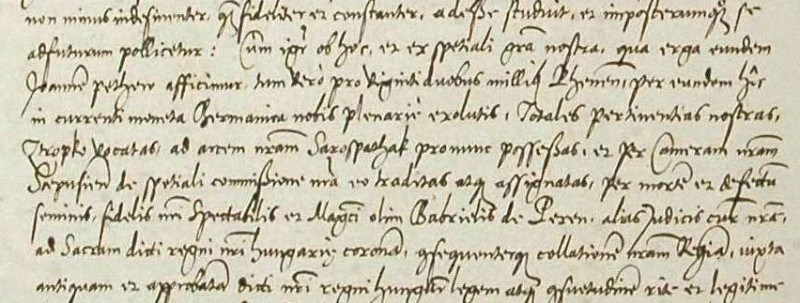 non minus indesinenter, q̃ fideliter et constanter, adesse studuit, et imposterumq̃ se
adfuturum pollicetur: Cum igr̃ ob hoc, et ex spetiali gr̃a nostra, qua erga eundem
Joannẽ pethew afficimur, tum vero pro viginti duobus milliq Rhenen̄, per eundem hĩc
in currenti moneta Germanica nobis plenarie exolutis, Totales pertinentias nostras,
Ztropko vocatas, ad arcem nr̃am Sarospathak pronunc possessas, et per Cameram nr̃am
Scepusien̄ de spetiali commissione nr̃a eo traditas atq assignatas, per mortẽ et defectũ
seminis, fidelis nr̃i Spectabilis et Mag̃ci olim Gabrielis de Peren, alias Judicis cur̃ nr̃ae,
ad Sacram dicti regni nr̃i hungariae coronã, q̃sequenterq collationẽ nr̃am Regiã, iuxta
antiquam et approbatã dicti nr̃i regni hungariae legem atq q̃suetudinẽ rite et legitime